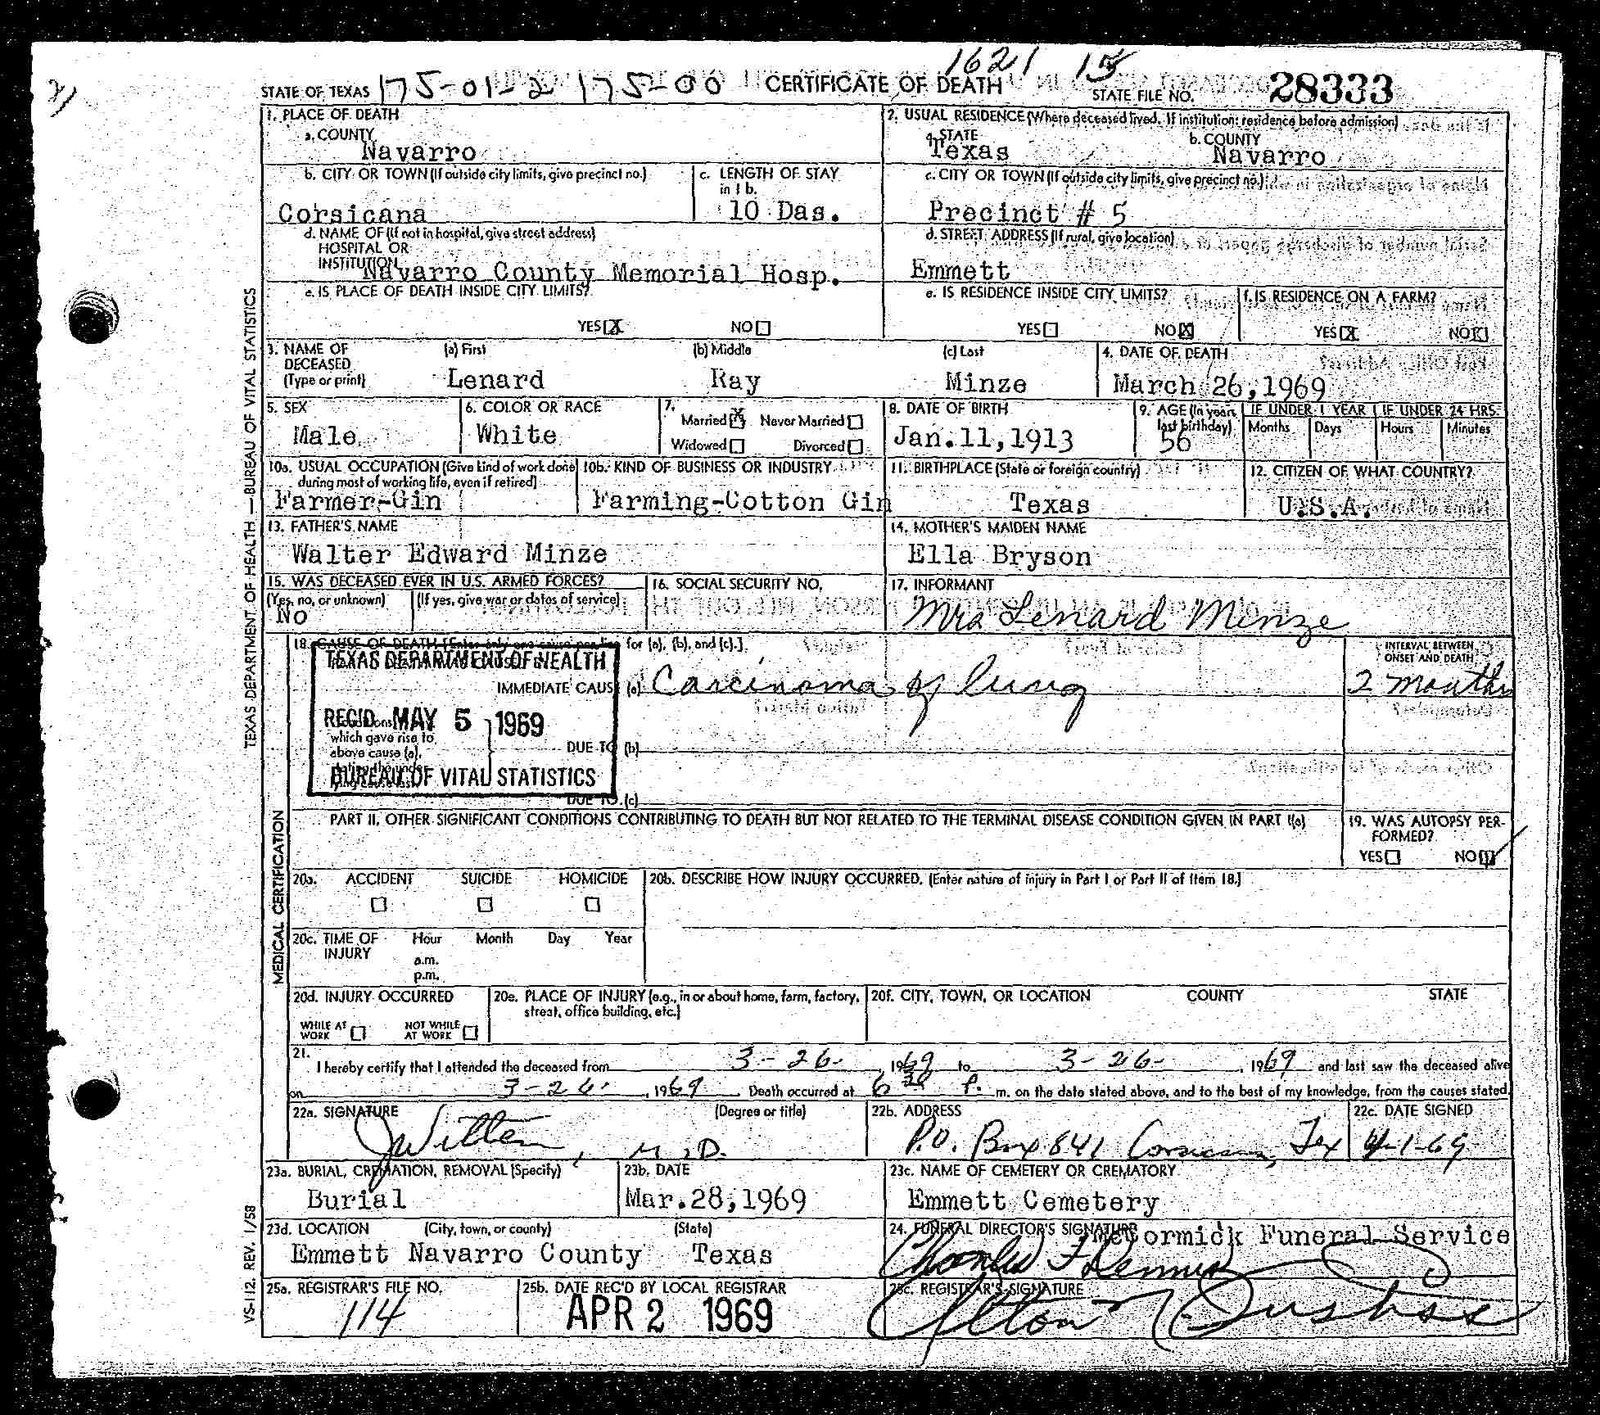 1621 15
STATE OF TEXAS 175-01-2 175-00 CERTIFICATE OF DEATH STATE FILE NO. 28333
1. PLACE OF DEATH
a. COUNTY
Navarro
2. USUAL RESIDENCE (Where deceased lived. If institution: residence before admission)
a. STATE b. COUNTY
Texas Navarro
b. CITY OR TOWN (If outside city limits, give precinct no.)
Corsicana
c. LENGTH OF STAY
in 1 b.
10 Das.
c. CITY OR TOWN (If outside city limits, give precinct no.)
Precinct # 5
d. NAME OF (If not in hospital, give street address)
HOSPITAL OR
INSTITUTION
Navarro County Memorial Hosp.
d. STREET ADDRESS (If rural, give location)
Emmett
e. IS PLACE OF DEATH INSIDE CITY LIMITS?
YES X NO
e. IS RESIDENCE INSIDE CITY LIMITS?
YES NO X
f. IS RESIDENCE ON A FARM?
YES X NO
3. NAME OF
DECEASED
(Type or print)
(a) First (b) Middle (c) Last
Lenard Ray Minze
4. DATE OF DEATH
March 26, 1969
5. SEX
Male
6. COLOR OR RACE
White
7.
Married X Never Married
Widowed Divorced
8. DATE OF BIRTH
Jan.11,1913
9. AGE (In years
last birthday)
56
IF UNDER 1 YEAR IF UNDER 24 HRS.
Months Days Hours Minutes
10a. USUAL OCCUPATION (Give kind of work done
during most of working life, even if retired)
Farmer-Gin
10b. KIND OF BUSINESS OR INDUSTRY
Farming-Cotton Gin
11. BIRTHPLACE (State or foreign country)
Texas
12. CITIZEN OF WHAT COUNTRY?
U.S.A.
13. FATHER'S NAME
Walter Edward Minze
14. MOTHER'S MAIDEN NAME
Ella Bryson
15. WAS DECEASED EVER IN U.S. ARMED FORCES?
(Yes, no, or unknown) (If yes, give war or dates of service)
No
16. SOCIAL SECURITY NO.
17. INFORMANT
Mrs Lenard Minze
18. CAUSE OF DEATH [Enter only one cause per line for (a), (b), and (c).]
TEXAS DEPARTMENT OF HEALTH
REC'D MAY 5 1969
BUREAU OF VITAL STATISTICS
IMMEDIATE CAUSE (a) Carcinoma of lung
which gave rise to
above cause (a),
DUE TO (b)
DUE TO (c)
INTERVAL BETWEEN
ONSET AND DEATH
2 months
PART II. OTHER SIGNIFICANT CONDITIONS CONTRIBUTING TO DEATH BUT NOT RELATED TO THE TERMINAL DISEASE CONDITION GIVEN IN PART I(a)
19. WAS AUTOPSY PER-
FORMED?
YES NO
20a. ACCIDENT SUICIDE HOMICIDE
20b. DESCRIBE HOW INJURY OCCURRED. (Enter nature of injury in Part I or Part II of Item 18.)
20c. TIME OF
INJURY
Hour Month Day Year
a.m.
p.m.
20d. INJURY OCCURRED
WHILE AT
WORK
NOT WHILE
AT WORK
20e. PLACE OF INJURY (e.g., in or about home, farm, factory,
street, office building, etc.)
20f. CITY, TOWN, OR LOCATION COUNTY STATE
21.
I hereby certify that I attended the deceased from 3-26- , 1969 to 3-26- , 1969 and last saw the deceased alive
on 3-26 , 1969 . Death occurred at 6 30 P. m. on the date stated above, and to the best of my knowledge, from the causes stated.
22a. SIGNATURE (Degree or title)
JWitten, M.D.
22b. ADDRESS
P.O. Box 841 Corsicana, Tex
22c. DATE SIGNED
4-1-69
23a. BURIAL, CREMATION, REMOVAL (Specify)
Burial
23b. DATE
Mar.28,1969
23c. NAME OF CEMETERY OR CREMATORY
Emmett Cemetery
23d. LOCATION (City, town, or county) (State)
Emmett Navarro County Texas
24. FUNERAL DIRECTOR'S SIGNATURE
McCormick Funeral Service
25a. REGISTRAR'S FILE NO.
114
25b. DATE REC'D BY LOCAL REGISTRAR
APR 2 1969
25c. REGISTRAR'S SIGNATURE
TEXAS DEPARTMENT OF HEALTH —BUREAU OF VITAL STATISTICS
MEDICAL CERTIFICATION
VS-112. REV. 1/58